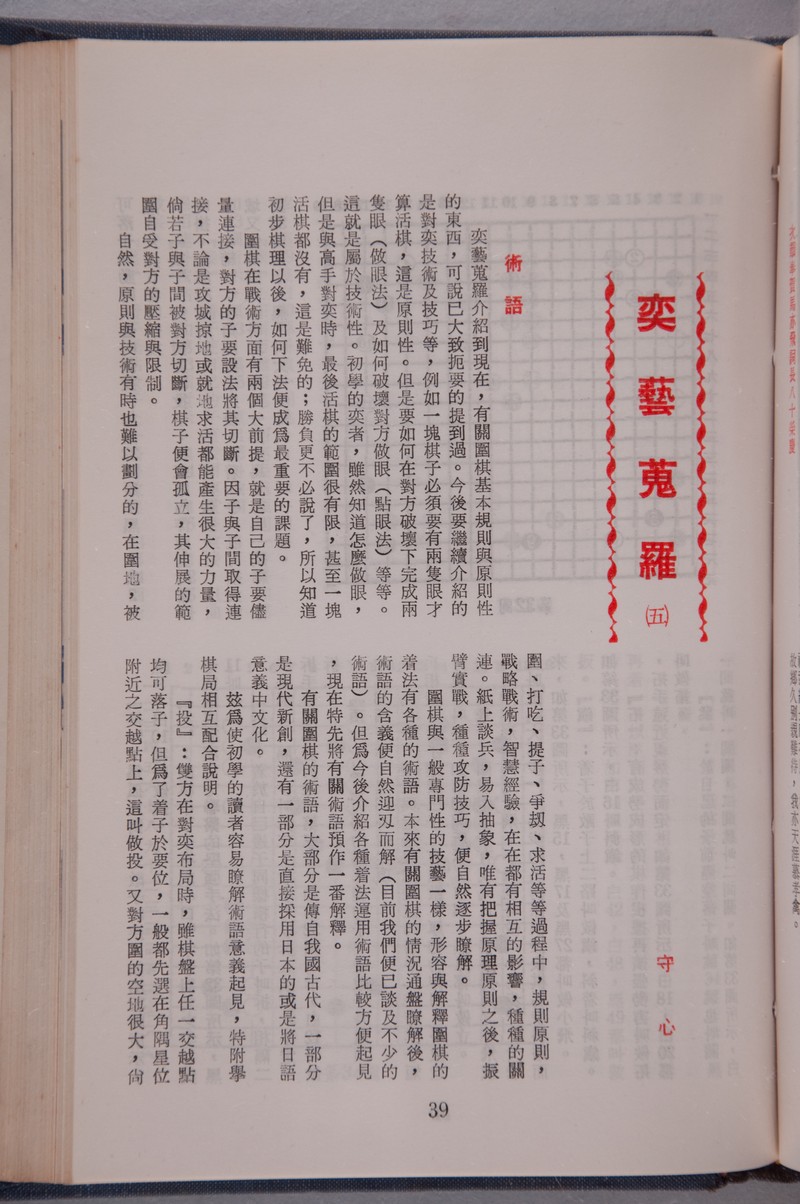 奕藝蒐羅㈤
守心
術語
奕藝蒐羅介紹到現在，有關圍棋基本規則與原則性
的東西，可說已大致扼要的提到過。今後要繼續介紹的
是對奕技術及技巧等，例如一塊棋子必須要有兩隻眼才
算活棋，這是原則性。但是要如何在對方破壞下完成兩
隻眼（做眼法）及如何破壞對方做眼（點眼法）等等。
這就是屬於技術性。初學的奕者，雖然知道怎麼做眼，
但是與高手對奕時，最後活棋的範圍很有限，甚至一塊
活棋都沒有，這是難免的；勝負更不必說了，所以知道
初步棋理以後，如何下法便成爲最重要的課題。
圍棋在戰術方面有兩個大前提，就是自己的子要儘
量連接，對方的子要設法將其切斷。因子與子間取得連
接，不論是攻城掠地或就地求活都能產生很大的力量，
倘若子與子間被對方切斷，棋子便會孤立，其伸展的範
圍自受對方的壓縮與限制。
自然，原則與技術有時也難以劃分的，在圍地，被
圍、打吃、提子、爭刼、求活等等過程中，規則原則，
戰略戰術，智慧經驗，在在都有相互的影響，種種的關
連。紙上談兵，易入抽象，唯有把握原理原則之後，振
臂實戰，種種攻防技巧，便自然逐步瞭解。
圍棋與一般專門性的技藝一樣，形容與解釋圍棋的
着法有各種的術語。本來有關圍棋的情況通盤瞭解後，
術語的含義便自然迎刃而解（目前我們便已談及不少的
術語）。但爲今後介紹各種着法運用術語比較方便起見
，現在特先將有關術語預作一番解釋。
有關圍棋的術語，大部分是傳自我國古代，一部分
是現代新創，還有一部分是直接採用日本的或是將日語
意義中文化。
玆爲使初學的讀者容易瞭解術語意義起見，特附舉
棋局相互配合說明。
『投』：雙方在對奕布局時，雖棋盤上任一交越點
均可落子，但爲了着子於要位，一般都先選在角隅星位
附近之交越點上，這叫做投。又對方圍的空地很大，尙
39